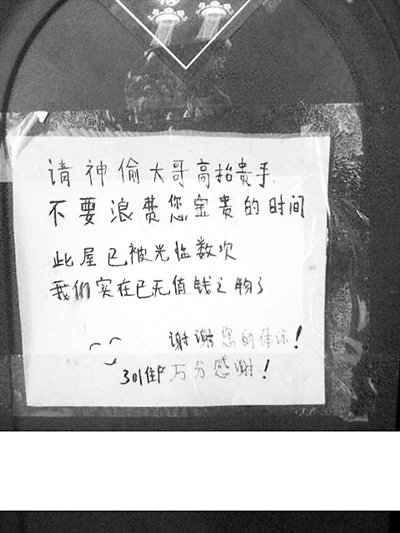 请神偷大哥高抬贵手
不要浪费您宝贵的时间
此屋已被光临数次
我们实在已无值钱之物了
谢谢您的体谅!
301住户万分感谢!